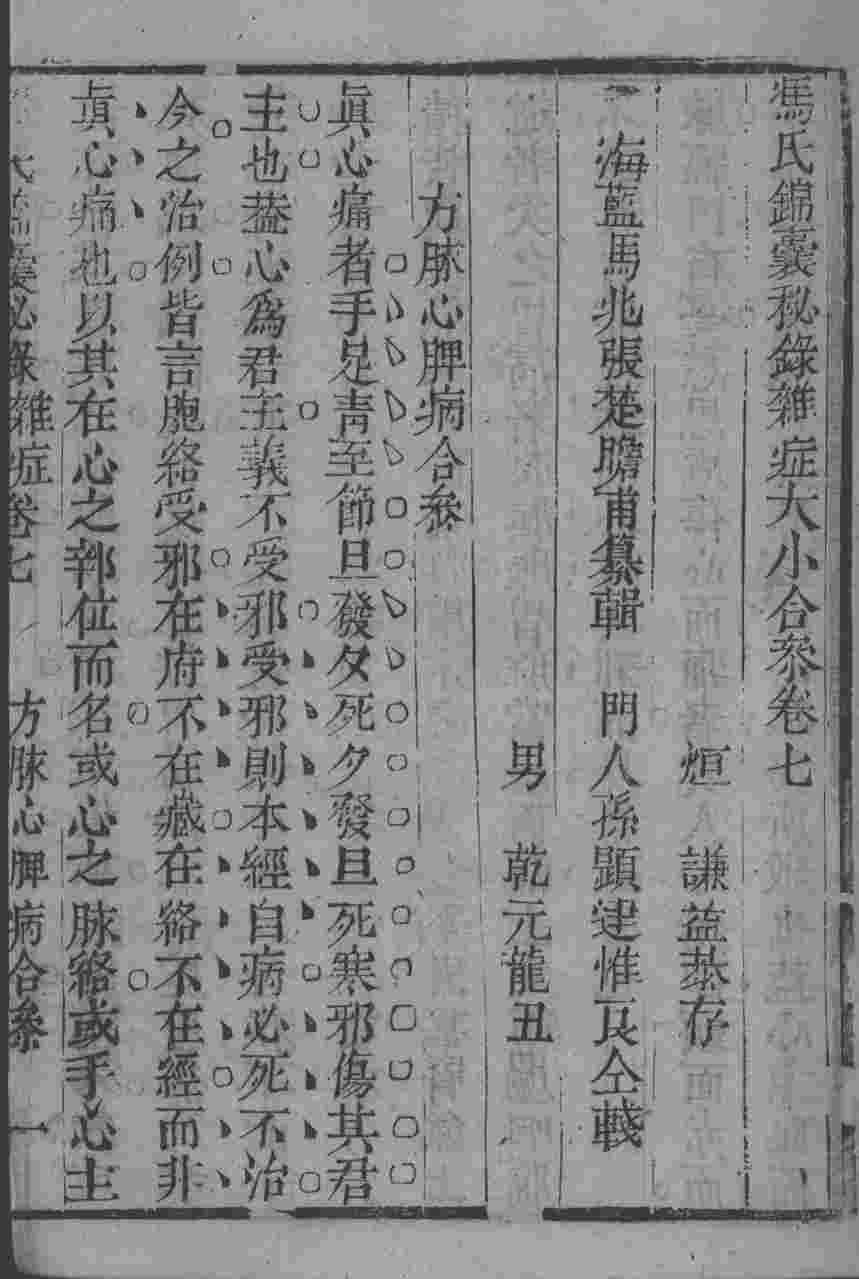 馮氏錦囊秘錄雜症大小合叅卷七
烜 謙益恭存
海藍馬兆張楚瞻甫纂輯 門人孫顕建惟良仝較
男 乾元龍丑
方脉心脾病合叅
眞心痛者手足靑至節旦發夕死夕發旦死寒邪傷其君
主也葢心爲君主義不受邪受邪則本經自病必死不治
今之治例皆言胞絡受邪在府不在藏在絡不在經而非
眞心痛也以其在心之部位而名或心之脉絡或手心主
氏錦囊秘錄雜症卷七 方脉心脾病合叅 一